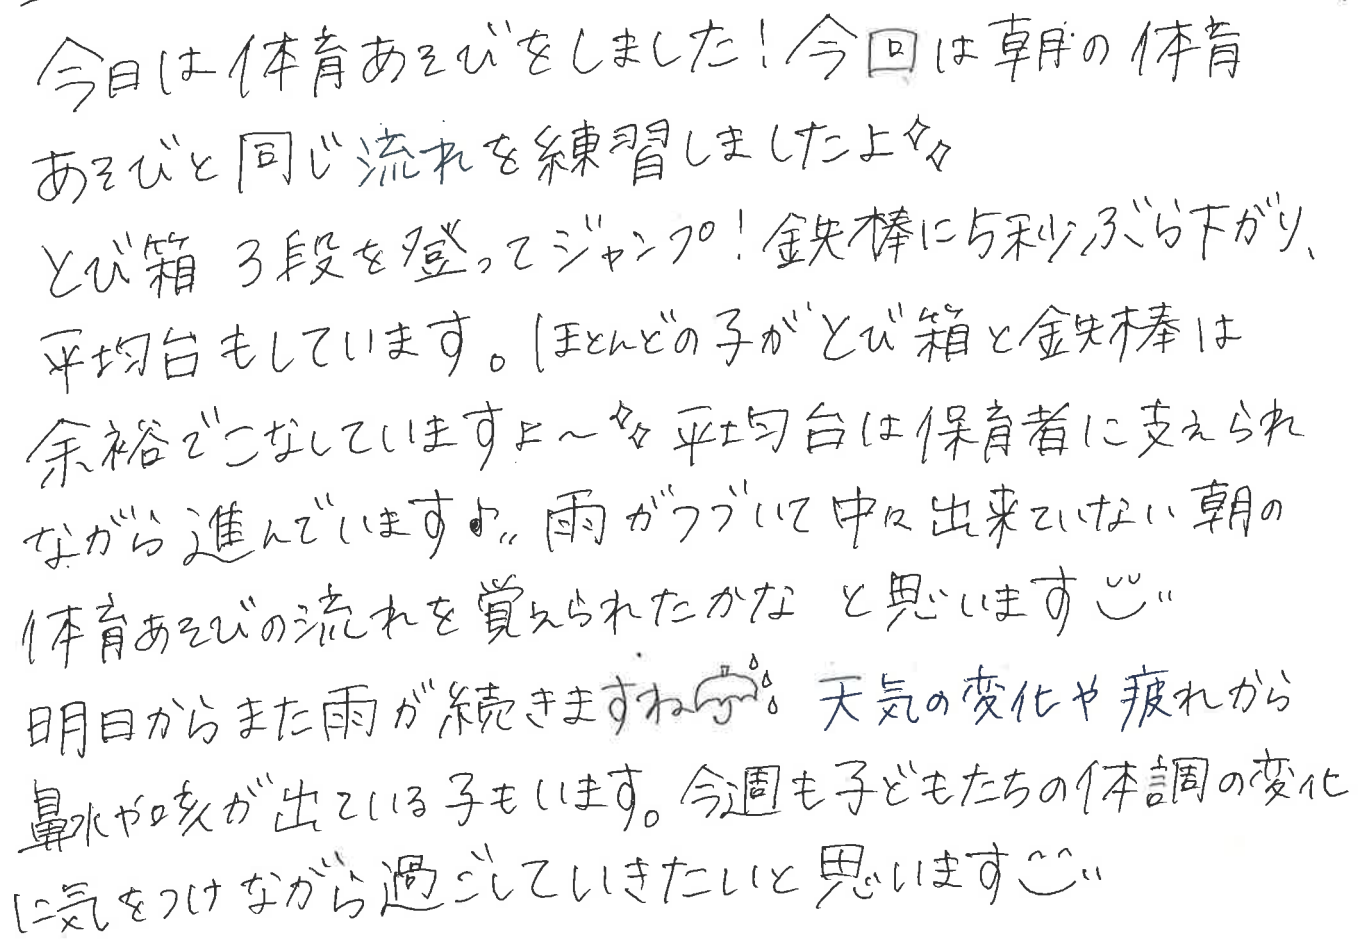 今日は体育あそびをしました！今回は朝の体育
あそびと同じ流れを練習しましたよ✨
とび箱 3段を登ってジャンプ！鉄棒に5秒ぶら下がり、
平均台もしています。ほとんどの子がとび箱と鉄棒は
余裕でこなしていますよ〜✨平均台は保育者に支えられ
ながら進んでいます♪雨がつづいて中々出来ていない朝の
体育あそびの流れを覚えられたかな と思います
明日からまた雨が続きますね☔ 天気の変化や疲れから
鼻水や咳が出ている子もいます。今週も子どもたちの体調の変化
に気をつけながら過ごしていきたいと思います